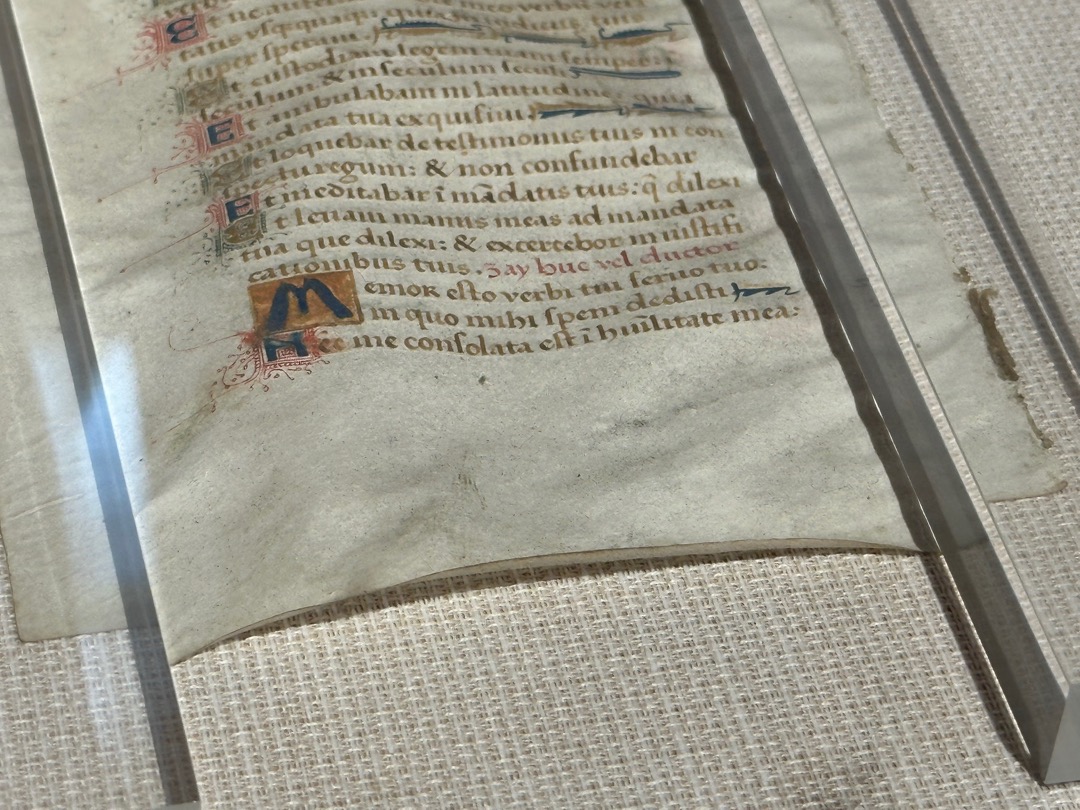 tatis vsquequaq
super speraui.
Et custodiam legem tuam semper:
culum & in seculum seculi
Et ambulabam in latitudine
mandata tua exquisiui:
Et loquebar de testimoniis tuis in con
spectu regum: & non confundebar
Et meditabar ī mādatis tuis: q̄ dilexi
Et leuaui manus meas ad mandata
tua que dilexi: & excercebor in iustifi
cationibus tuis. zay huc vel ductor
Memor esto verbi tui seruo tuo:
in quo mihi spem dedisti
Hec me consolata est ī huilitate mea: